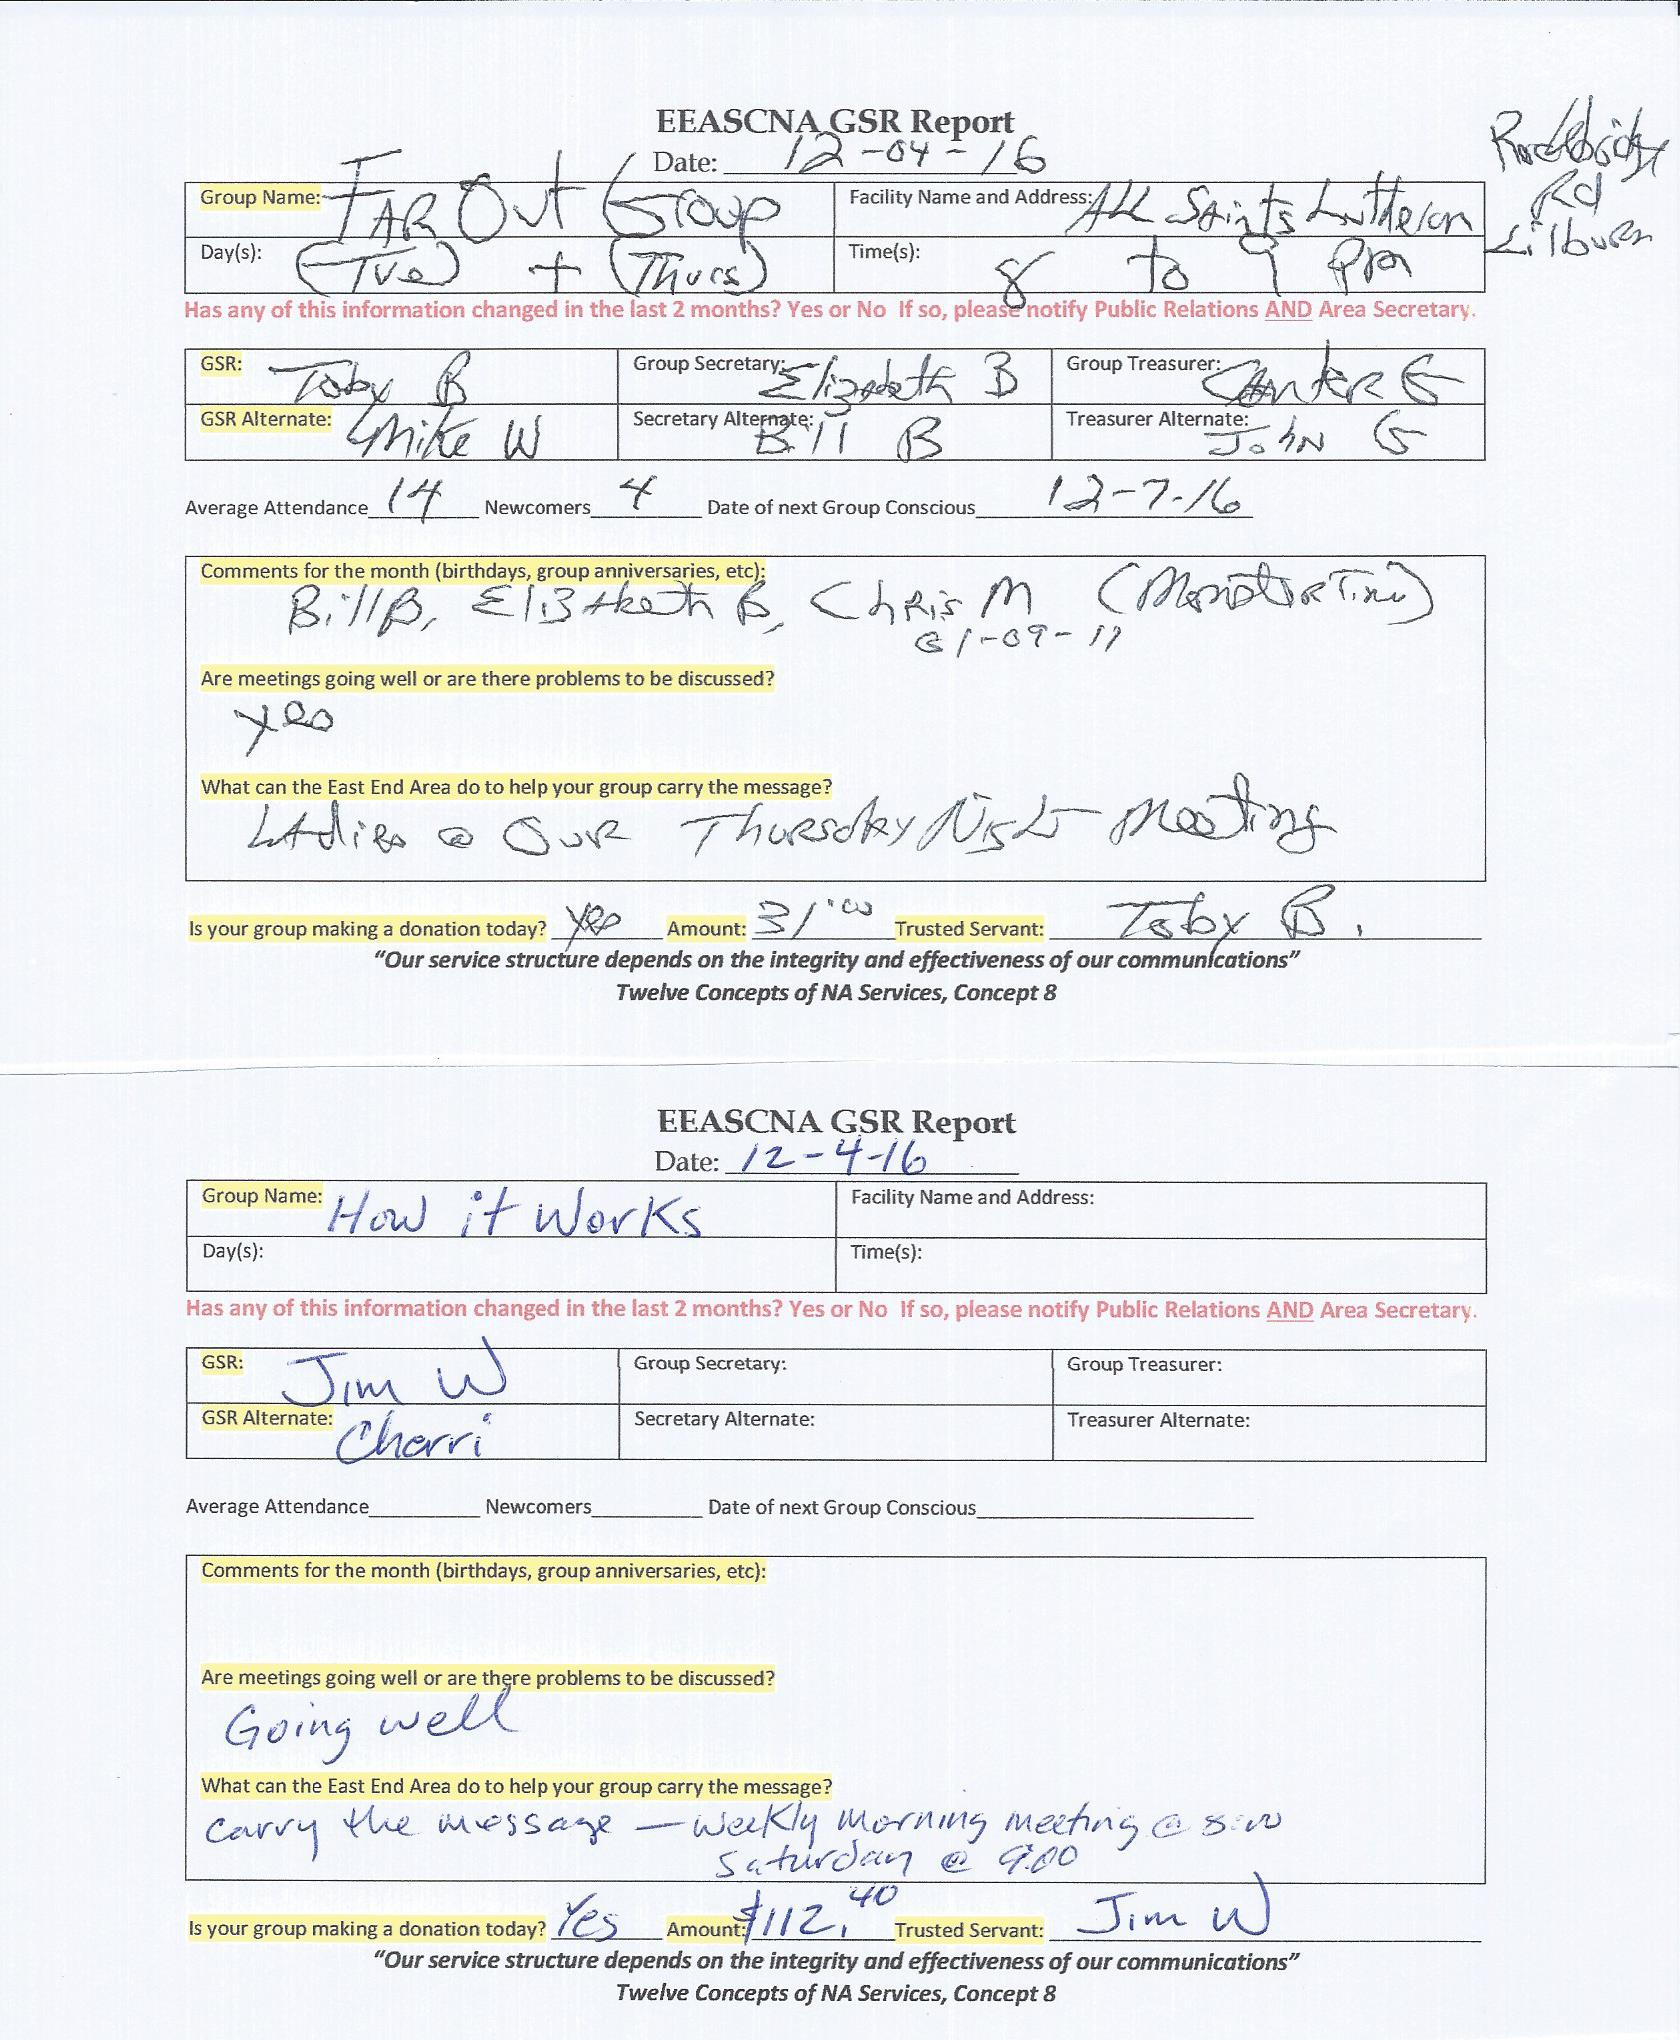 EEASCNA GSR Report
Date: 12-04-16
Rockbridge
Rd
Lilburn
Group Name: FAR Out Group Facility Name and Address: ALL Saints Lutheran
Day(s): (Tue) + (Thurs) Time(s): 8 to 9 pm
Has any of this information changed in the last 2 months? Yes or No If so, please notify Public Relations AND Area Secretary.
GSR: Toby B Group Secretary: Elizabeth B Group Treasurer: G
GSR Alternate: Mike W Secretary Alternate: Bill B Treasurer Alternate: John G
Average Attendance 14 Newcomers 4 Date of next Group Conscious 12-7-16
Comments for the month (birthdays, group anniversaries, etc):
Bill B, Elizabeth B, Chris M
01-09-17
Are meetings going well or are there problems to be discussed?
yes
What can the East End Area do to help your group carry the message?
Ladies @ Our Thursday Night Meeting
Is your group making a donation today? yes Amount: 31.00 Trusted Servant: Toby B.
"Our service structure depends on the integrity and effectiveness of our communications"
Twelve Concepts of NA Services, Concept 8
EEASCNA GSR Report
Date: 12-4-16
Group Name: How it Works Facility Name and Address:
Day(s): Time(s):
Has any of this information changed in the last 2 months? Yes or No If so, please notify Public Relations AND Area Secretary.
GSR: Jim W Group Secretary: Group Treasurer:
GSR Alternate: Cherri Secretary Alternate: Treasurer Alternate:
Average Attendance Newcomers Date of next Group Conscious
Comments for the month (birthdays, group anniversaries, etc):
Are meetings going well or are there problems to be discussed?
Going well
What can the East End Area do to help your group carry the message?
carry the message — Weekly Morning meeting @ 8:00
Saturday @ 9:00
Is your group making a donation today? Yes Amount: $112.40 Trusted Servant: Jim W
"Our service structure depends on the integrity and effectiveness of our communications"
Twelve Concepts of NA Services, Concept 8